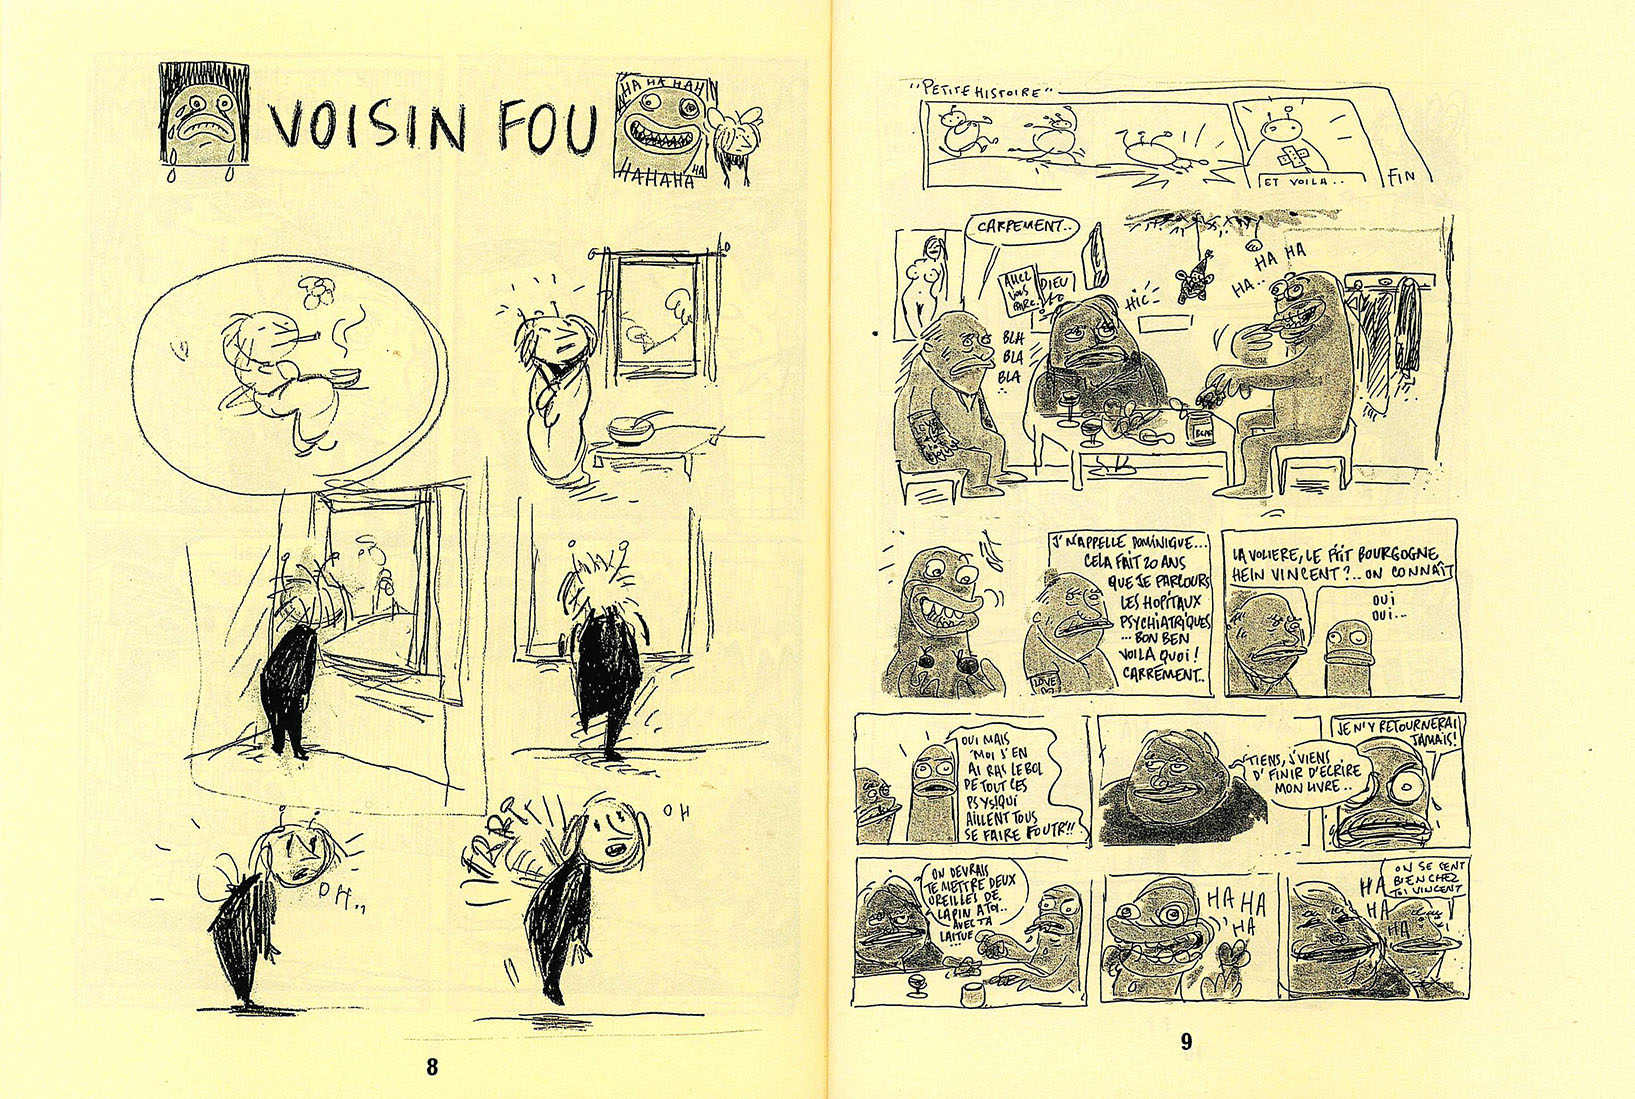 HA HA HAH
VOISIN FOU
HA
HAHAHA
OH..
FRRRT
OH
8
"PETITE HISTOIRE"
ET VOILA..
FIN
CARREMENT..
ALLEZ
VOUS
FAIRE.
DIEU
BLA
BLA
BLA
HIC-
HA..
HA HA
J'M'APPELLE DOMINIQUE...
CELA FAIT 20 ANS
QUE JE PARCOURS
LES HOPITAUX
PSYCHIATRIQUES
... BON BEN
VOILA QUOI!
CARRÉMENT..
LOVE
LA VOLIERE, LE P'TIT BOURGOGNE
HEIN VINCENT?.. ON CONNAIT
OUI
OUI...
OUI MAIS
MOI J'EN
AI RAS LE BOL
DE TOUT CES
PSYS!QUI
AILLENT TOUS
SE FAIRE FOUTR'!!
TIENS, J'VIENS
D'FINIR D'ECRIRE
MON LIVRE..
JE N'Y RETOURNERAI
JAMAIS!
ON DEVRAIS
TE METTRE DEUX
OREILLES DE
LAPIN A TOI..
AVEC TA
LAITUE
...
HA HA
HA
HA
HA
HA
ON SE SENT
BIEN CHEZ
TOI VINCENT
9